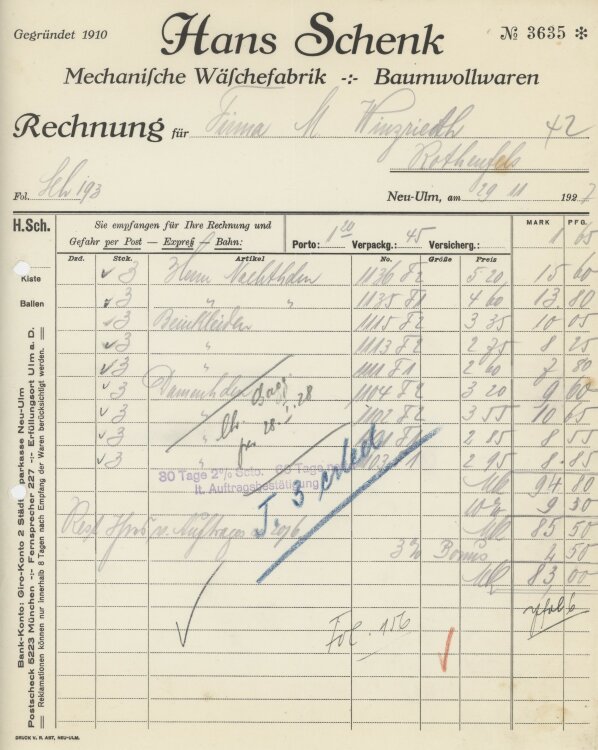 Gegründet 1910
Hans Schenk
№ 3635 ✻
Mechanische Wäschefabrik -:- Baumwollwaren
Rechnung für Firma M Winzrieth 42
Rothenfels
Fol. 193
Neu-Ulm, am 29 11 1927
H.Sch.
Sie empfangen für Ihre Rechnung und
Gefahr per Post — Expreß — Bahn:
Porto: 1 20 Verpackg.: 45 Versicherg.:
MARK PFG.
1 65
Dzd. Stck. Artikel No. Größe Preis
Kiste
Ballen
3 Herrn Nachthemden 1136 F2 5 20 15 60
3 " " 1135 F1 4 60 13 80
3 Beinkleider 1115 F2 3 35 10 05
3 " 1113 F2 2 75 8 25
3 " 1111 F1 2 60 7 80
3 Damenhemden 1104 F2 3 20 9 60
3 " 1102 F2 3 55 10 65
3 " 2 85 8 55
3 " 2 95 8.85
28.I.28
30 Tage 2% Scto. 60 Tage n
lt. Auftragsbestätigung
Mk 94 80
10% 9 30
Mk 85 50
Rest Ihres w. Auftrages
3% Bonus
Mk 83,00
Fol. 156
Bank-Konto: Giro-Konto 2 Städt. Sparkasse Neu-Ulm
Postscheck 5223 München -:- Fernsprecher 227 -:- Erfüllungsort Ulm a. D.
Reklamationen können nur innerhalb 8 Tagen nach Empfang der Waren berücksichtigt werden.
DRUCK V. R. ABT, NEU-ULM.